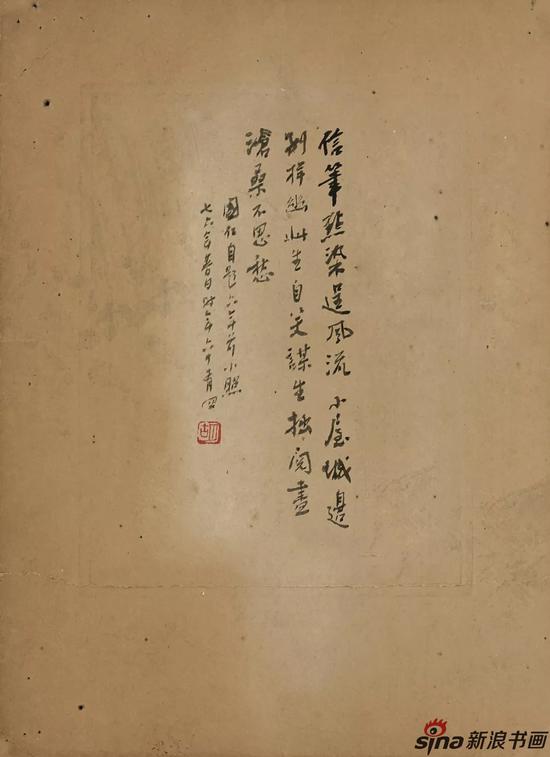 信筆點染逞風流小屋城邊
別樣幽此生自笑謀生拙閱盡
滄桑不思愁
國仁自題六年前小照
七六年春日時年六十有四
sina新浪书画